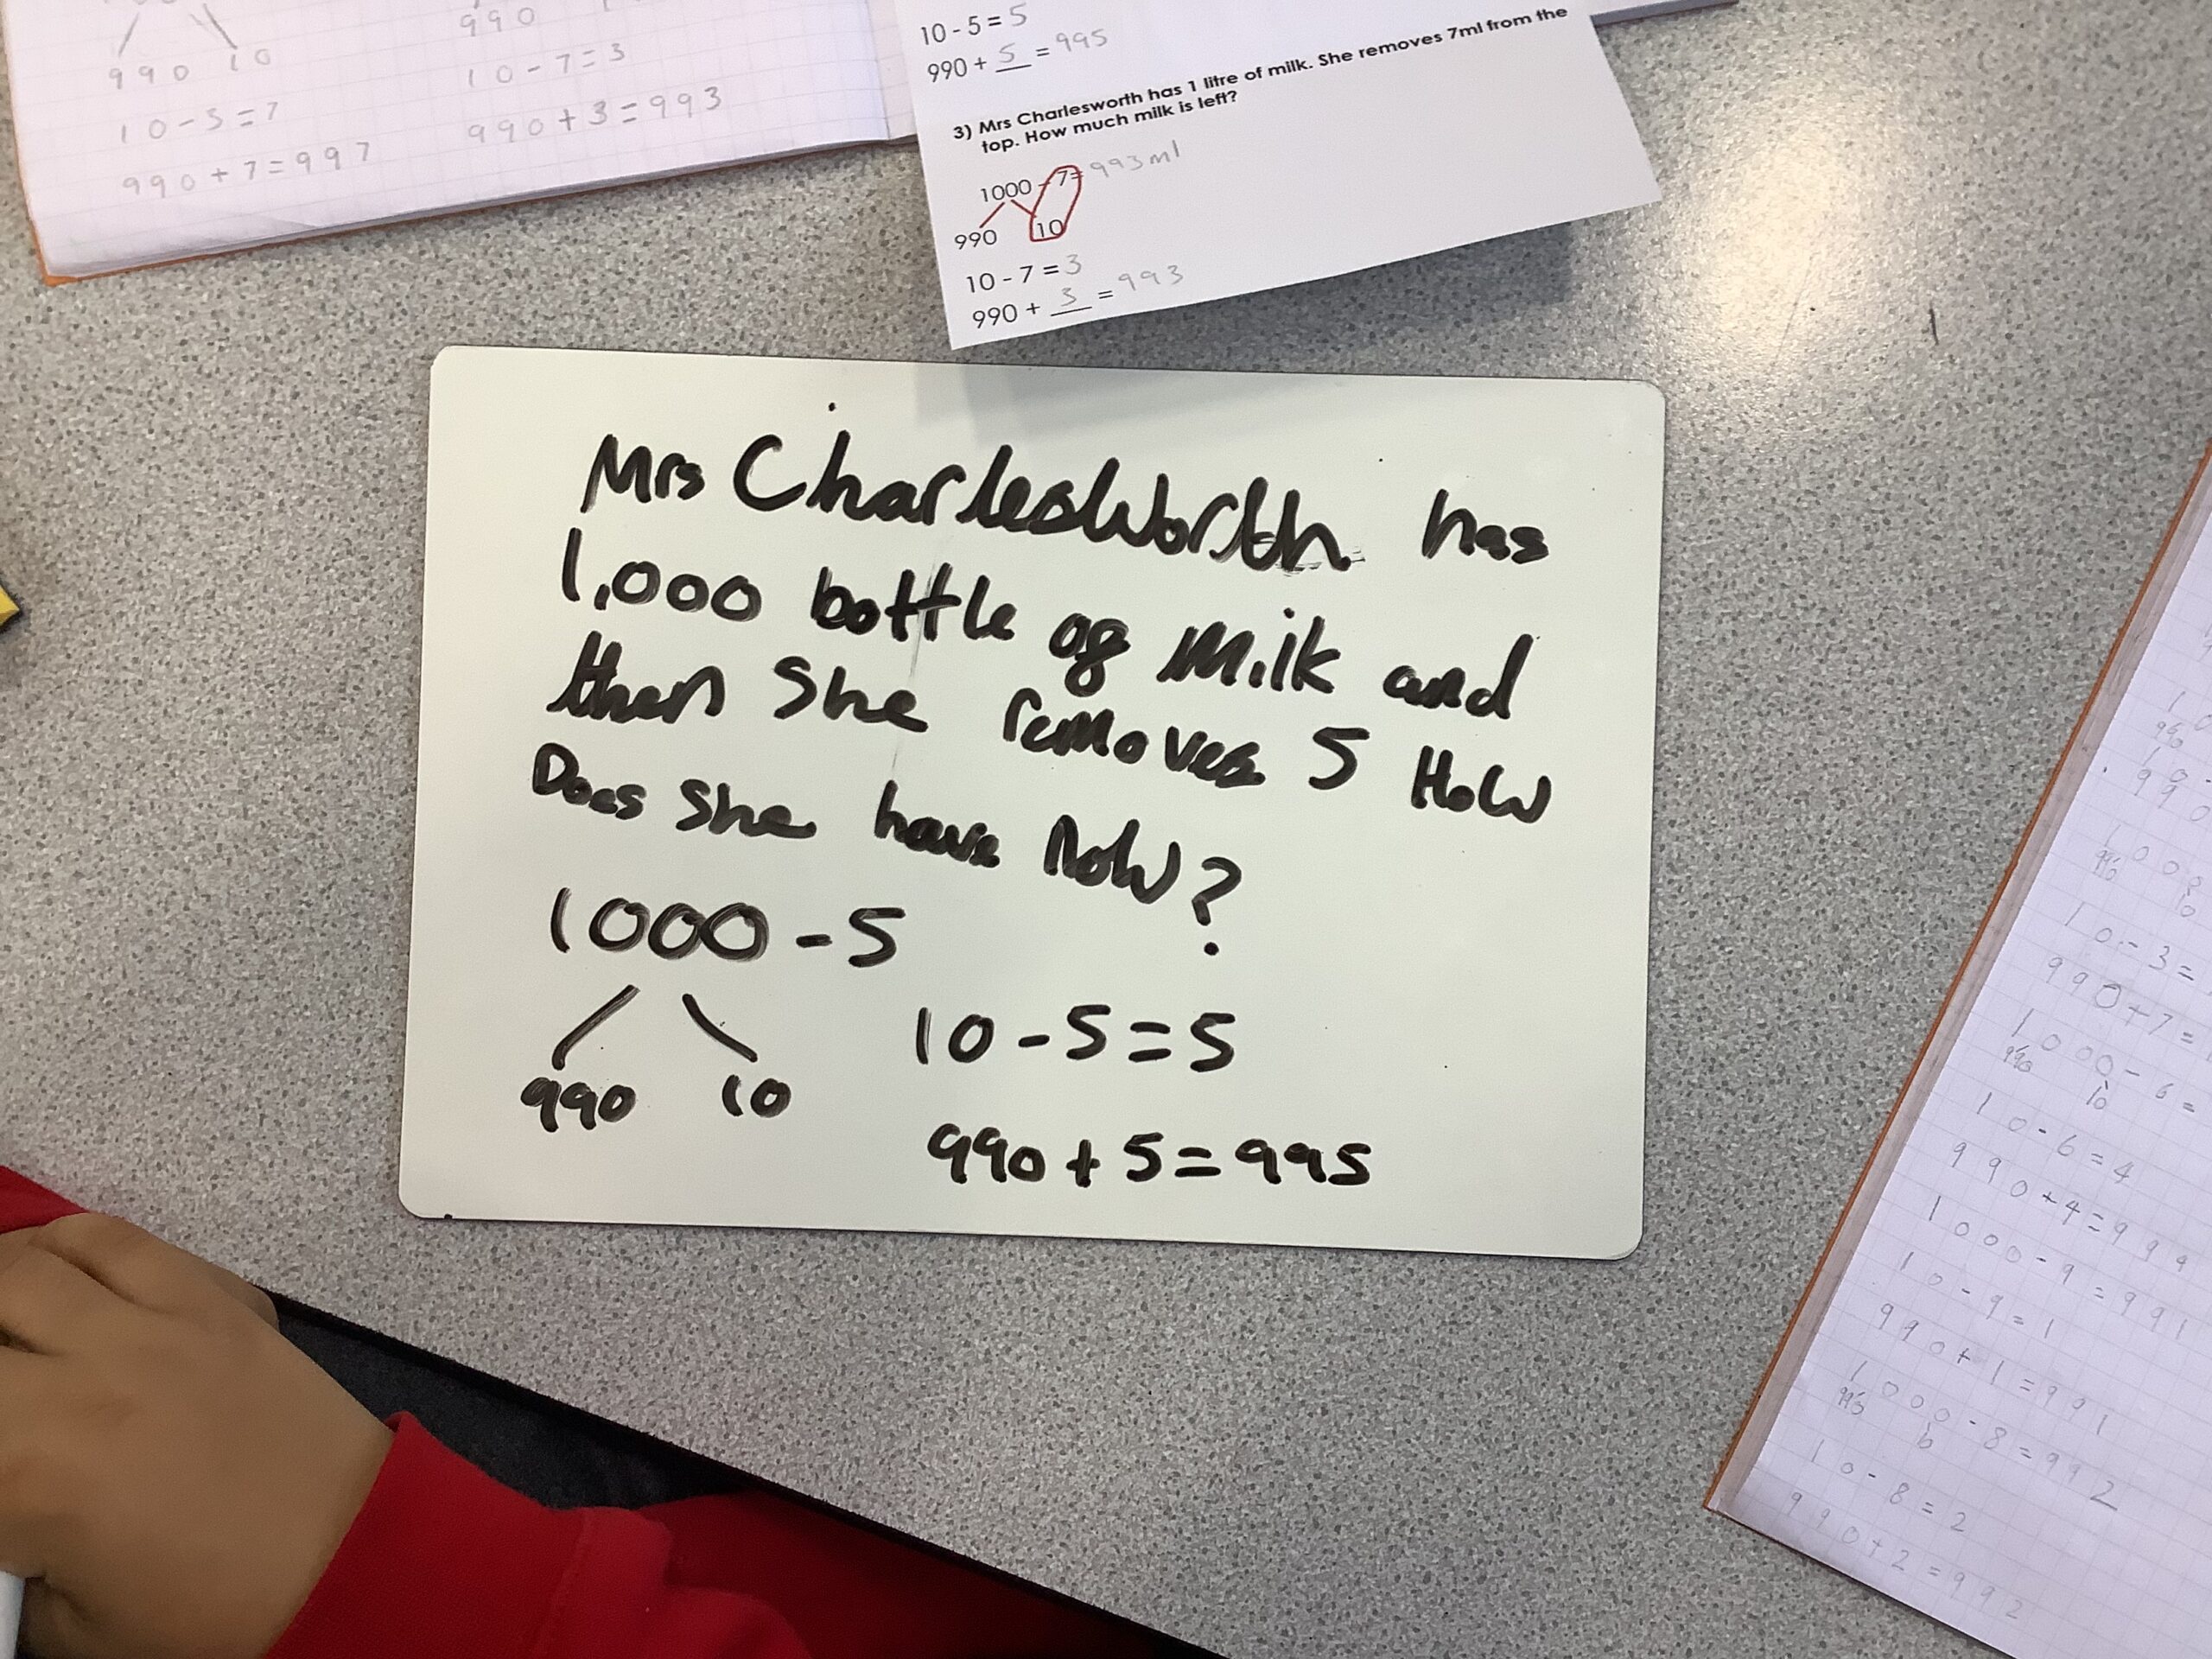 990 10
10-3=7
990+7=997
990
10-7=3
990+3=993
10 - 5 = 5
990 + 5 = 995
3) Mrs Charlesworth has 1 litre of milk. She removes 7ml from the
top. How much milk is left?
1000 - 7= 993ml
990 10
10 - 7 = 3
990 + 3 = 993
Mrs Charlesworth has
1,000 bottle of Milk and
then She removes 5 How
Does She have Now?
1000 - 5
990 10
10 - 5 = 5
990 + 5 = 995
10 - 3 =
990+7=
1000 - 6 =
990 10
10 - 6 = 4
990+4=999
1000 - 9 = 991
10 - 9 = 1
990+1=991
1000 - 8 = 992
10 - 8 = 2
990+2=992